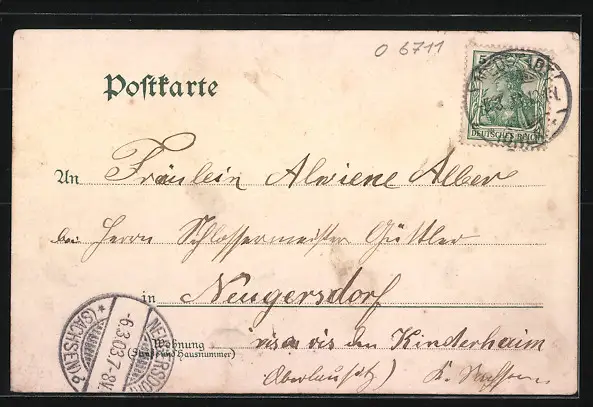 O 6711
Postkarte
5
DEUTSCHES REICH
An Fräulein Alwiene Alber
bei Herrn Schlossermeister Güttler
in Neugersdorf
Wohnung
(Straße und Hausnummer)
vis a vis den Kinderheim
Oberlausitz) K. Sachsen
NEUGERSDORF
-6.3.03.7-8V.
* (SACHSEN) b